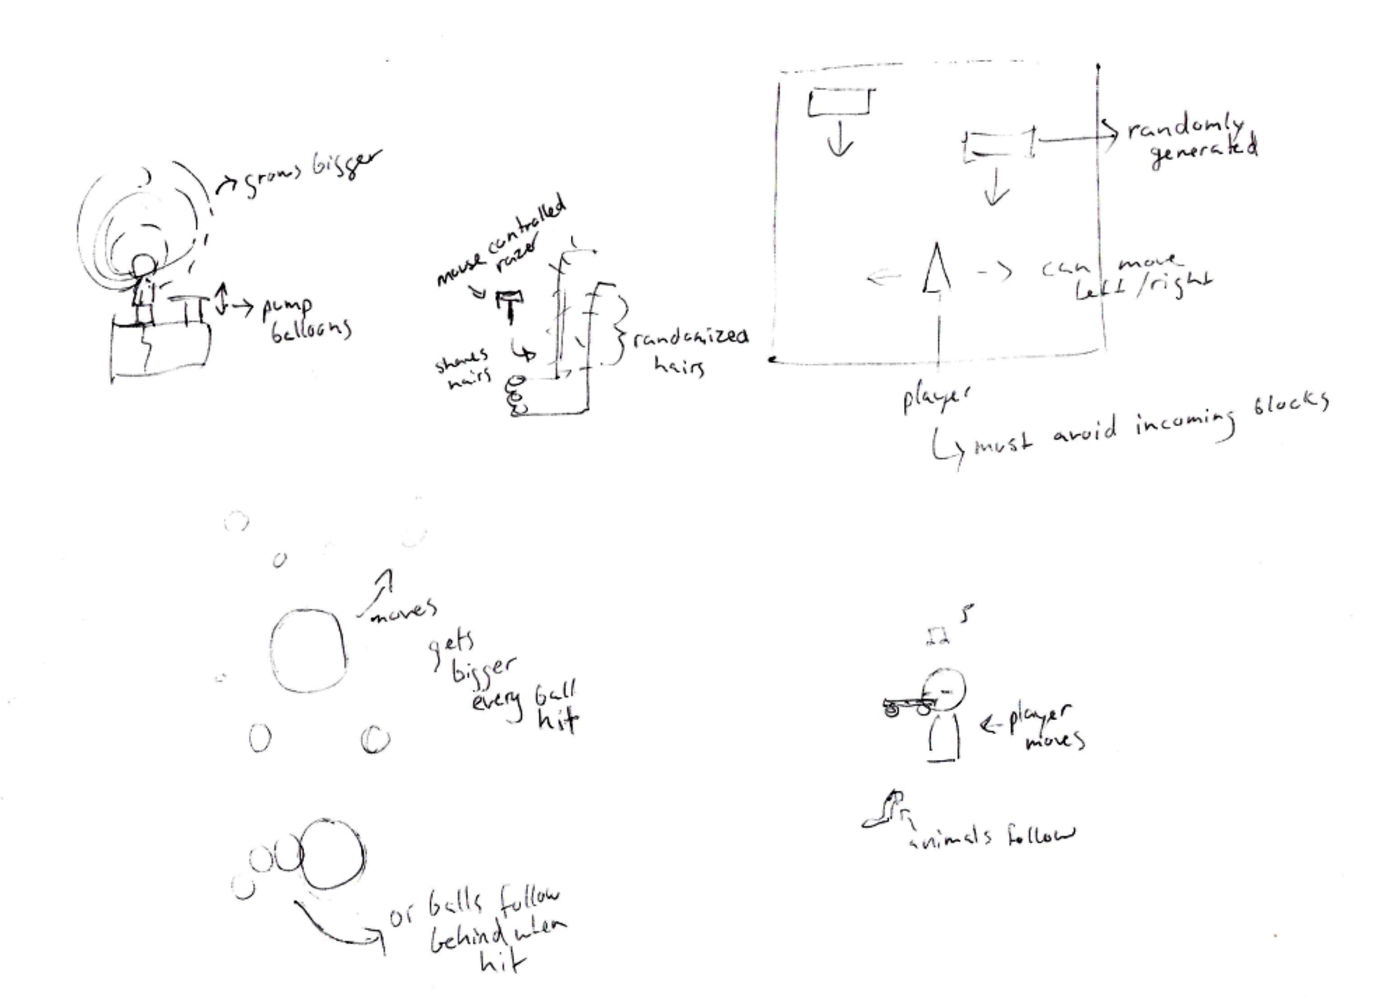 grows bigger
pump
balloons
mouse controlled
razor
shaves
hairs
randomized
hairs
randomly
generated
can move
left/right
player
must avoid incoming blocks
moves
gets
bigger
every ball
hit
or balls follow
behind when
hit
player
moves
animals follow